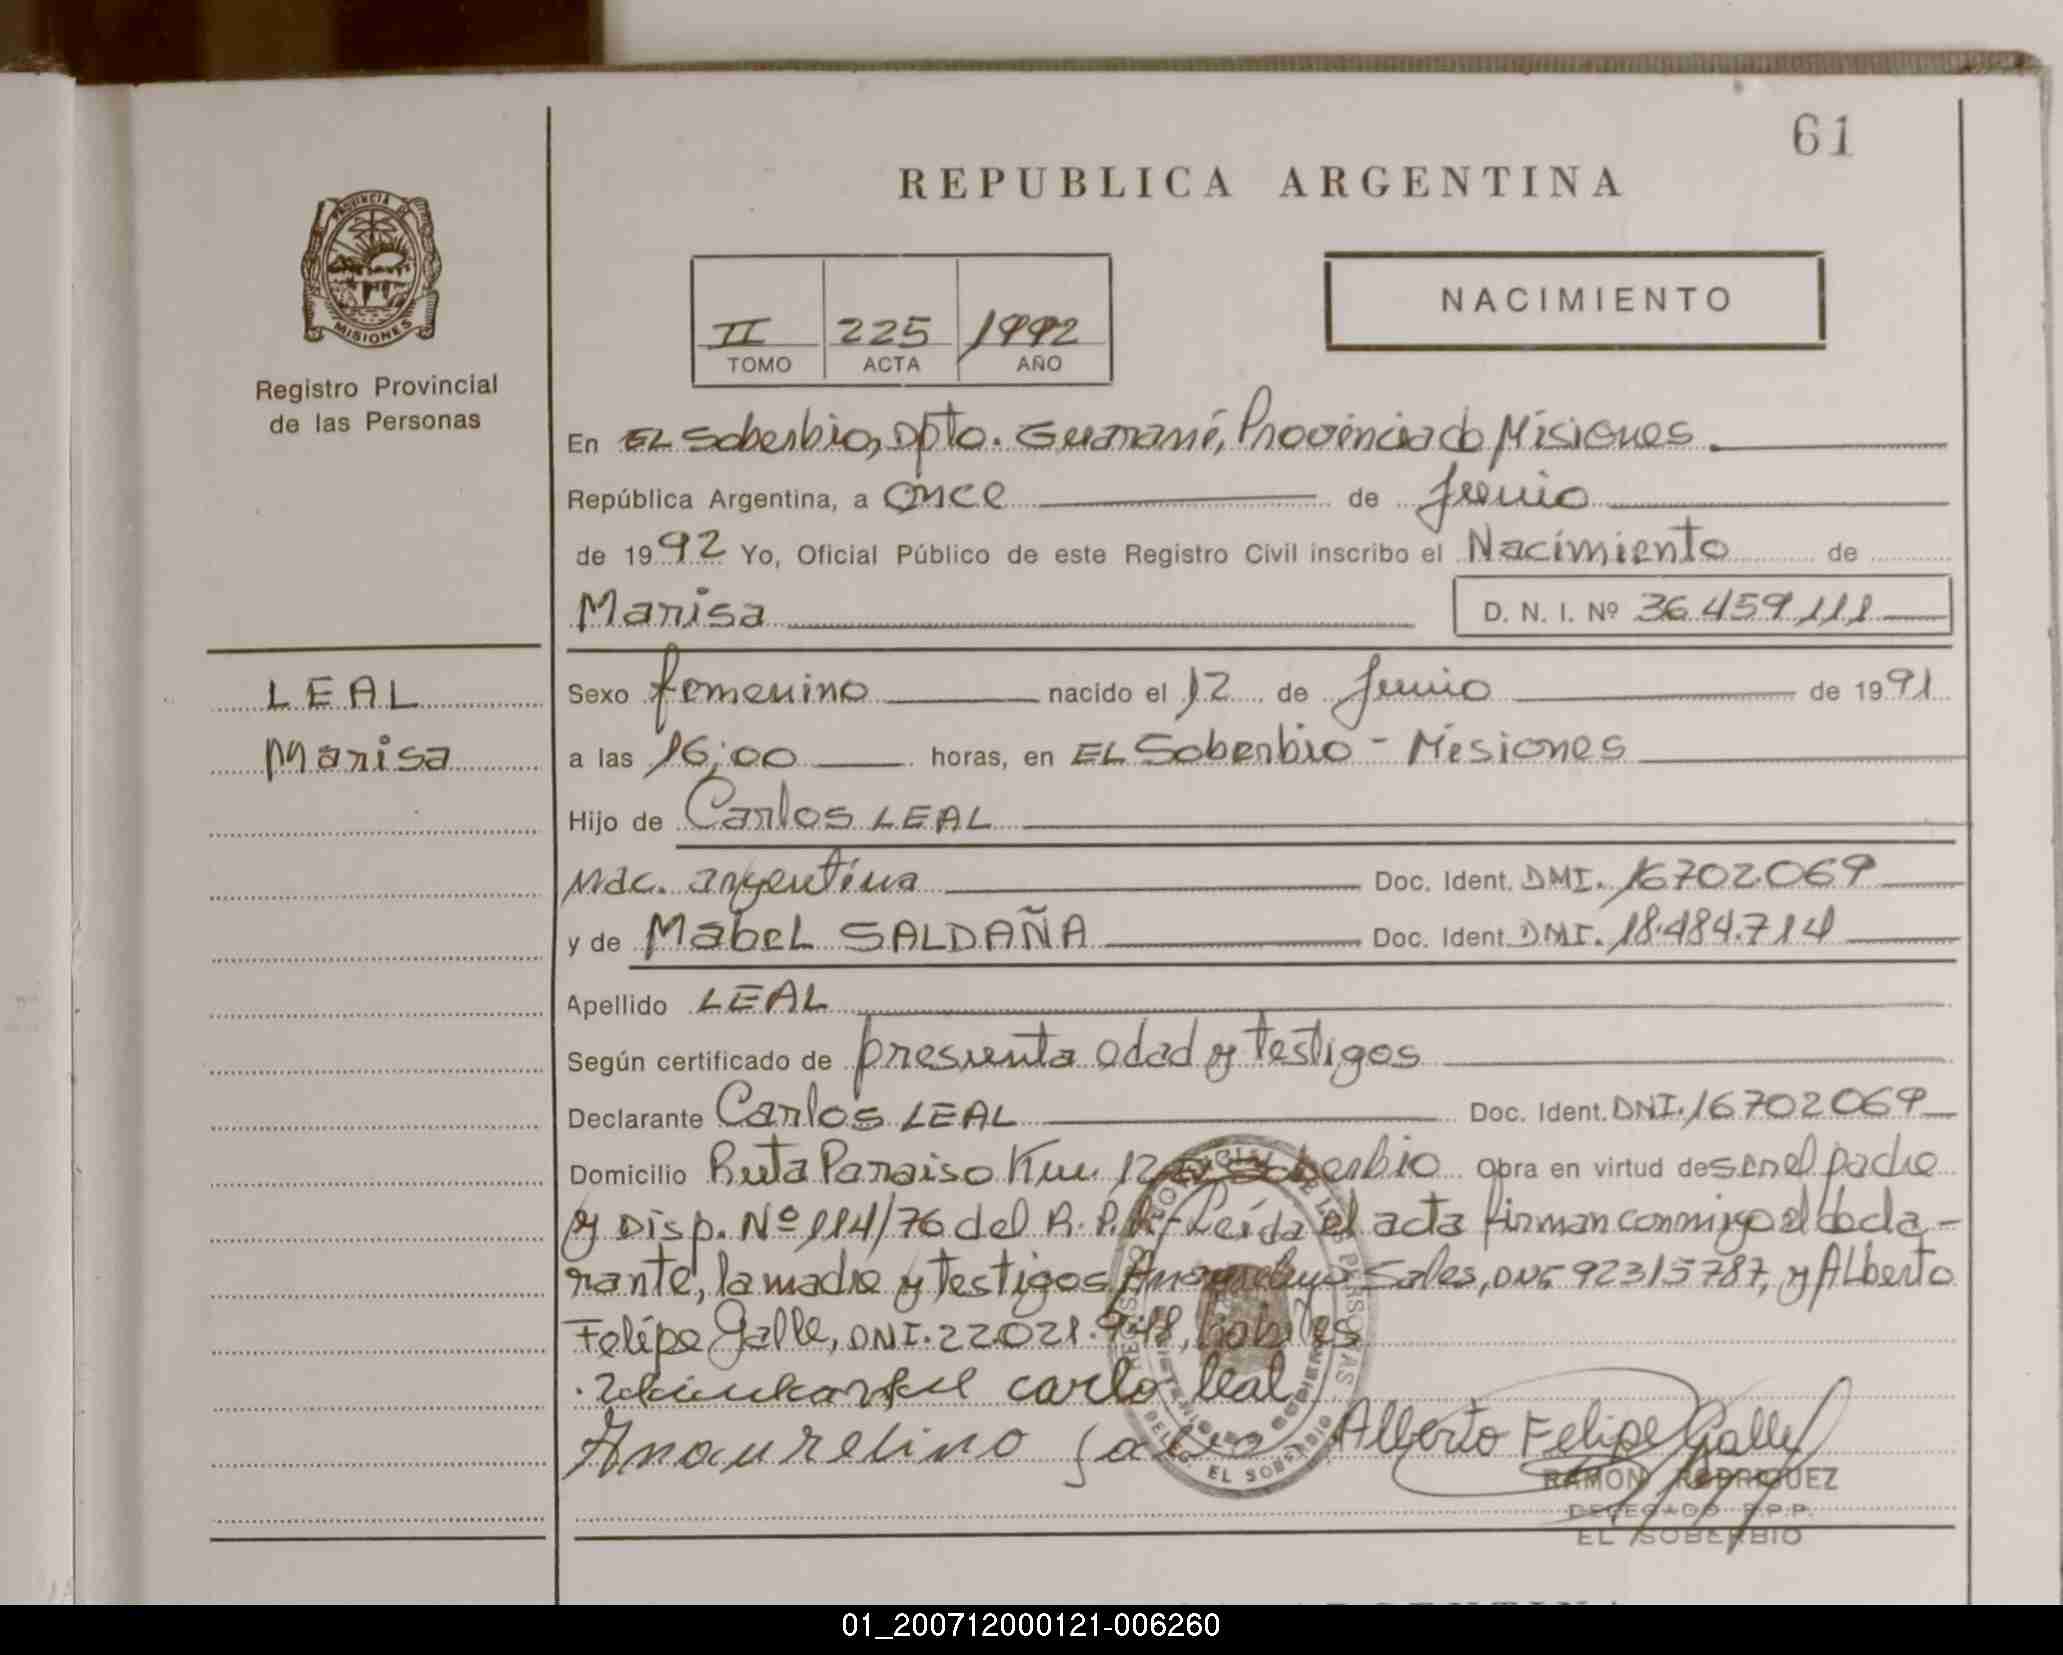 61
REPUBLICA ARGENTINA
PROVINCIA DE
MISIONES
Registro Provincial
de las Personas
II 225 1992
TOMO ACTA AÑO
NACIMIENTO
En EL Soberbio, Dpto. Guaraní, Provincia de Misiones
República Argentina, a once de Junio
de 1992 Yo, Oficial Público de este Registro Civil inscribo el Nacimiento de
Marisa D. N. I. Nº 36.459.111
LEAL
Marisa
Sexo femenino nacido el 12 de Junio de 1991
a las 16:00 horas, en EL Soberbio - Misiones
Hijo de Carlos LEAL
Nac. argentina Doc. Ident. DNI. 16702.069
y de Mabel SALDAÑA Doc. Ident. DNI. 18.484.714
Apellido LEAL
Según certificado de presunta edad y testigos
Declarante Carlos LEAL Doc. Ident. DNI. 16702069
Domicilio Ruta Paraiso Km. 12 El Soberbio Obra en virtud de ser el padre
y Disp. Nº 114/76 del R. P. P. Leída el acta firman conmigo el decla-
rante, la madre y testigos Sales, DNI 92315787, y Alberto
Felipe Galle, DNI. 22.021.948, hábiles
carlo leal
Anaurelino Alberto Felipe Galle
RAMON RODRIGUEZ
DELEGADO R.P.P.
EL SOBERBIO
REGISTRO PROVINCIAL DE LAS PERSONAS
MINISTERIO DE GOBIERNO
DELEG. EL SOBERBIO
01_200712000121-006260